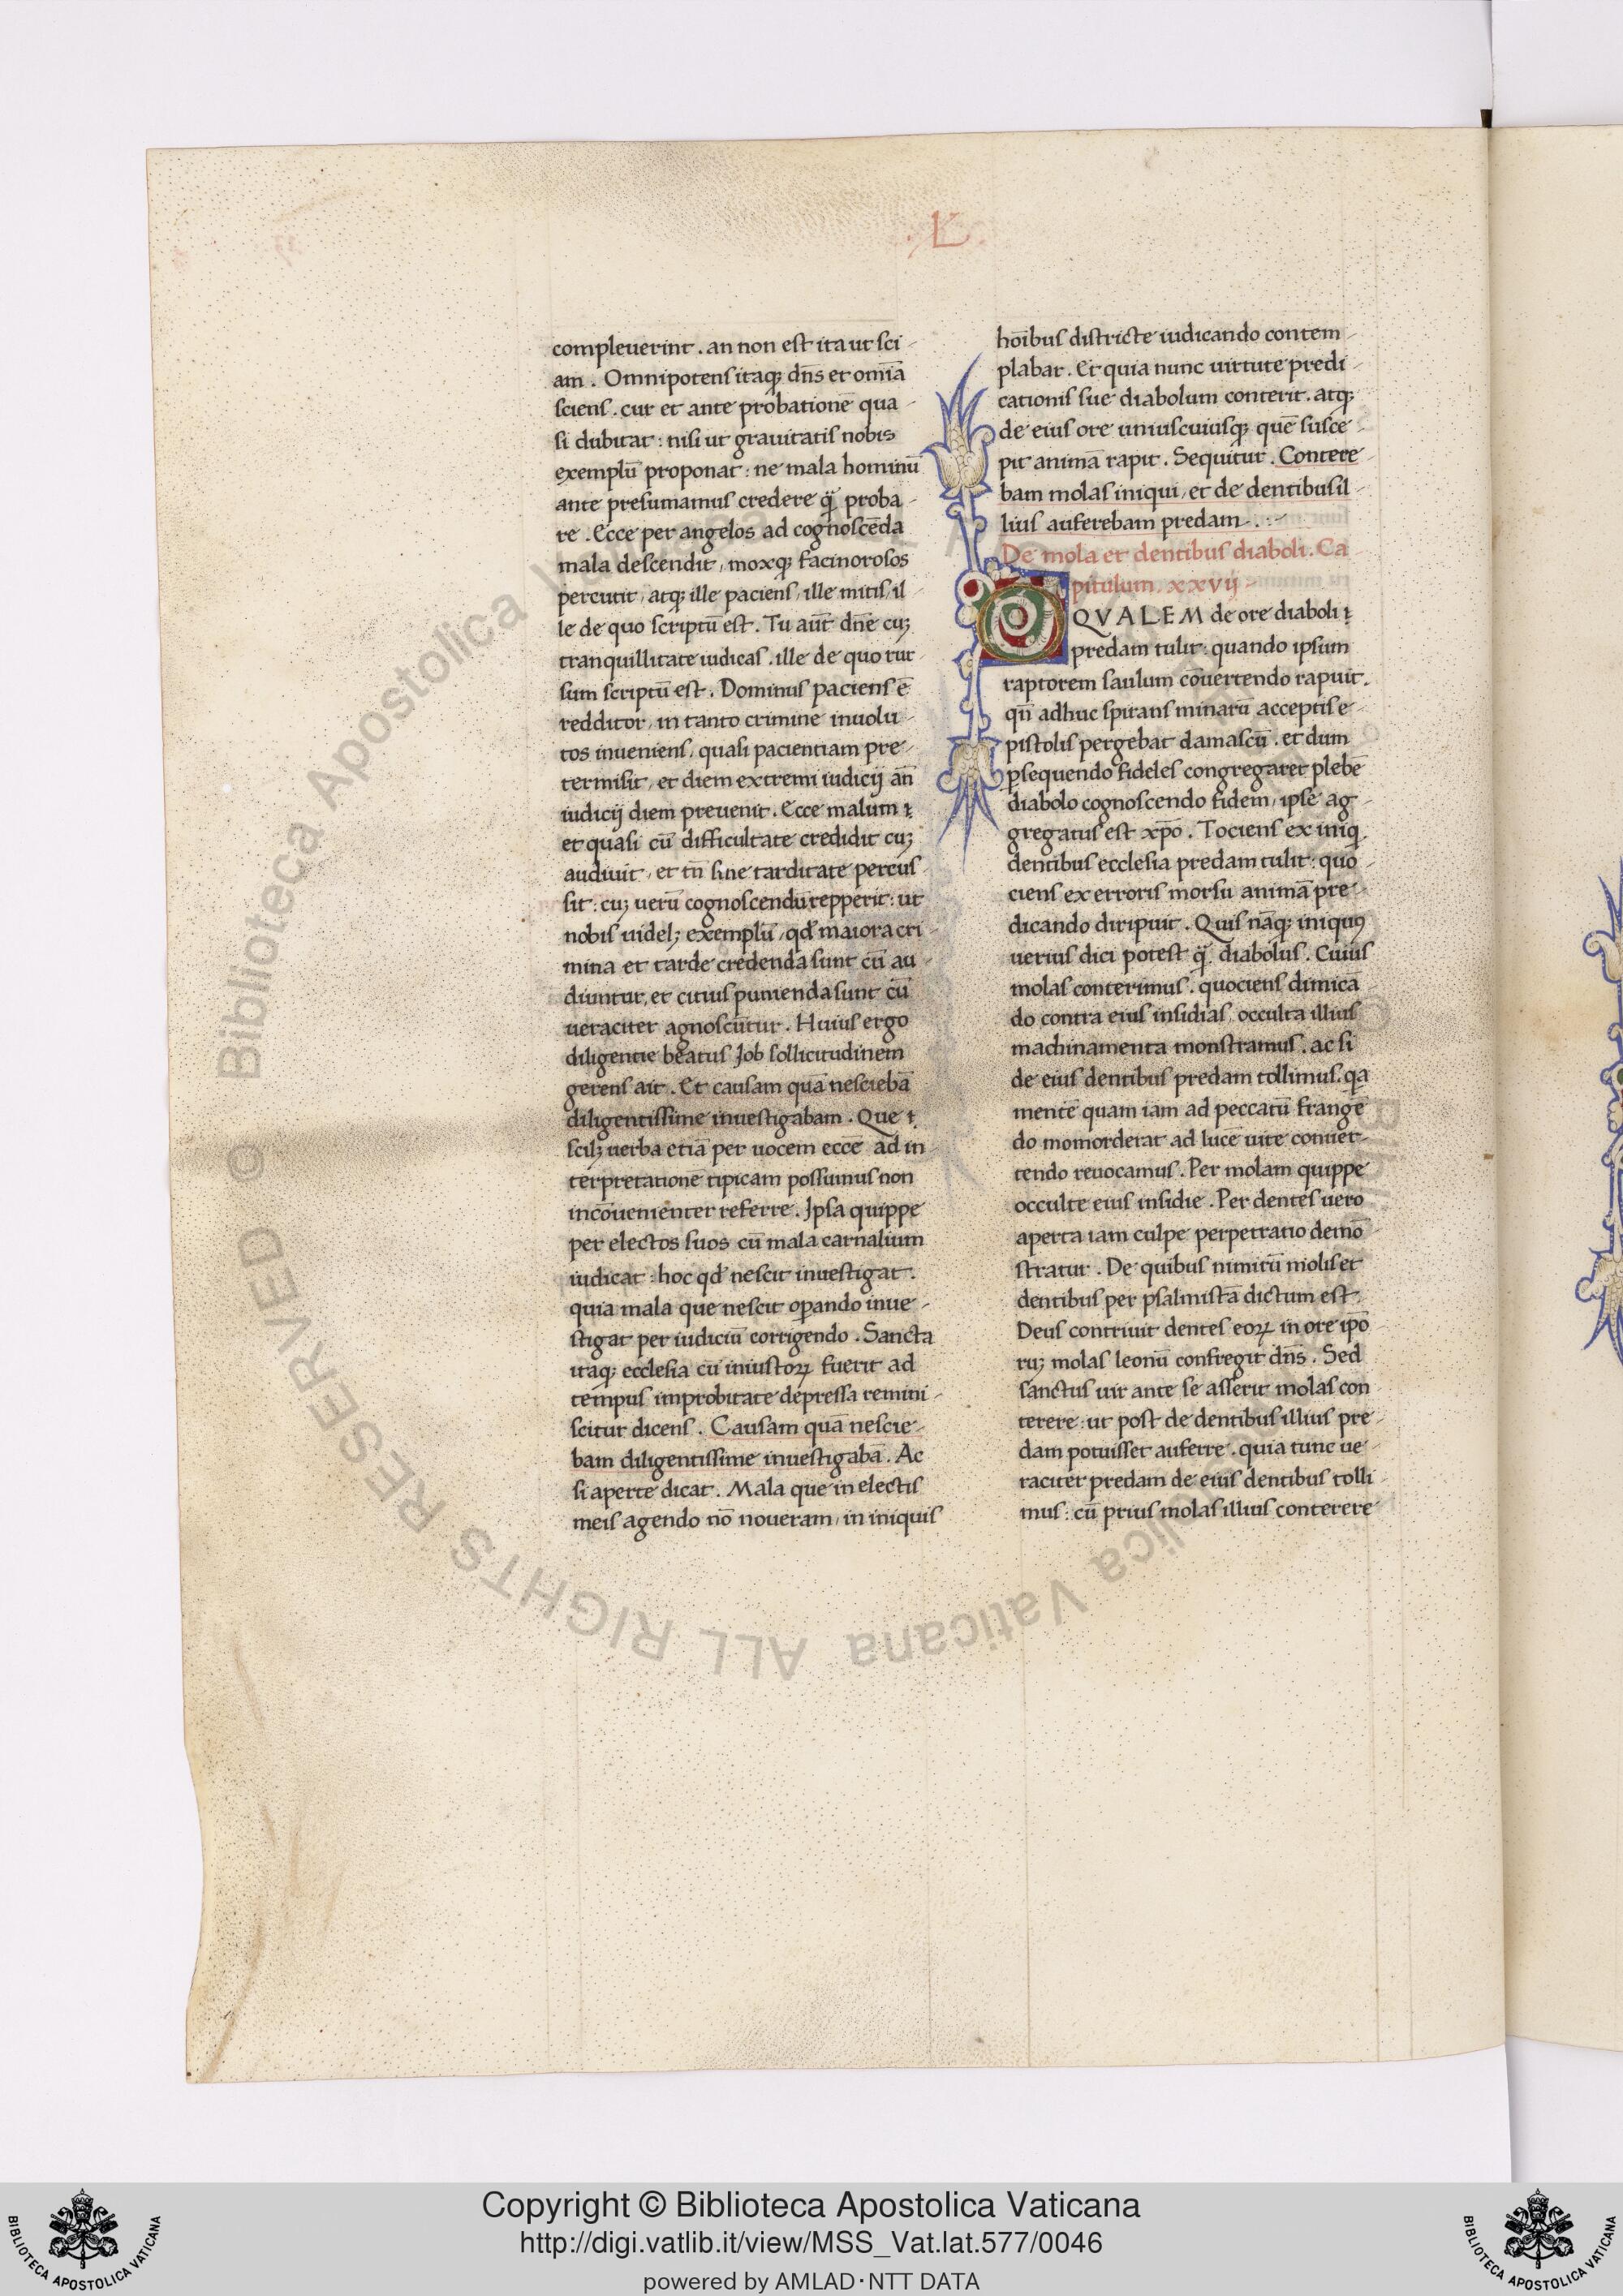 . L .
compleuerint . an non est ita ut sci-
am . Omnipotens itaq; dn̄s et omīa
sciens . cur et ante probationē qua-
si dubitat : nisi ut grauitatis nobis
exemplū proponat : ne mala hominū
ante presumamus credere q̄ proba-
re . Ecce per angelos ad cognoscēda
mala descendit , moxq; facinorosos
percutit , atq; ille paciens , ille mitis , il
le de quo scriptū est . Tu aūt dn̄e cu;
tranquillitate iudicas . ille de quo rur-
sum scriptū est . Dominus paciens ē
redditor , in tanto crimine inuolu-
tos inueniens , quasi pacientiam pre-
termisit , et diem extremi iudicij an̄
iudicij diem preuenit . Ecce malum ⁊
et quasi cū difficultate credidit cu;
audiuit , et tn̄ sine tarditate percus-
sit : cu; uerū cognoscendū repperit : ut
nobis uidel; exemplū , qd̄ maiora cri-
mina et tarde credenda sunt cū au-
diuntur , et citius punienda sunt cū
ueraciter agnoscūtur . Huius ergo
diligentie beatus Job sollicitudinem
gerens ait . Et causam quā nesciebā
diligentissime inuestigabam . Que ⁊
scil; uerba etiā per uocem ecc̄e ad in-
terpretationē tipicam possumus non
incōuenienter referre . Ipsa quippe
per electos suos cū mala carnalium
iudicat : hoc qd̄ nescit inuestigat .
quia mala que nescit oꝑando inue-
stigat per iudiciū corrigendo . Sancta
itaq; ecclesia cū iniustoꝝ fuerit ad
tempus improbitate depressa remini-
scitur dicens . Causam quā nescie-
bam diligentissime inuestigabā . Ac
si aperte dicat . Mala que in electis
meis agendo nō noueram , in iniquis
hoībus districte iudicando contem-
plabar . Et quia nunc uirtute predi-
cationis sue diabolum conterit . atq;
de eius ore uniuscuiusq; quē susce-
pit animā rapit . Sequitur . Contere-
bam molas iniqui , et de dentibus il-
lius auferebam predam . : -
De mola et dentibus diaboli . Ca
pitulum . xxvij -
QVALEM de ore diaboli ⁊
predam tulit : quando ipsum
raptorem saulum cōuertendo rapuit .
qn̄ adhuc spirans minarū acceptis e-
pistolis pergebat damascū . et dum
ꝑsequendo fideles congregaret plebē
diabolo cognoscendo fidem , ipse ag-
gregatus est xp̄o . Tociens ex iniq
dentibus ecclesia predam tulit : quo-
ciens ex erroris morsu animā pre-
dicando diripuit . Quis nāq; iniquꝰ
uerius dici potest q̄ diabolus . Cuius
molas conterimus . quociens dimicā
do contra eius insidias , occulta illius
machinamenta monstramus . ac si
de eius dentibus predam tollimus . qa
mentē quam iam ad peccatū frangē
do momorderat ad lucē uite conuer-
tendo reuocamus . Per molam quippe
occulte eius insidie . Per dentes uero
aperta iam culpe perpetratio demō-
stratur . De quibus nimirū molis et
dentibus per psalmistā dictum est .
Deus contriuit dentes eoꝝ in ore ipo
ru; molas leonū confregit dn̄s . Sed
sanctus uir ante se asserit molas con
terere : ut post de dentibus illius pre-
dam potuisset auferre . quia tunc ue-
raciter predam de eius dentibus tolli
mus : cū prius molas illius conterere
Biblioteca Apostolica Vaticana ALL RIGHTS RESERVED ©
Copyright © Biblioteca Apostolica Vaticana
http://digi.vatlib.it/view/MSS_Vat.lat.577/0046
powered by AMLAD·NTT DATA
BIBLIOTECA APOSTOLICA VATICANA
BIBLIOTECA APOSTOLICA VATICANA